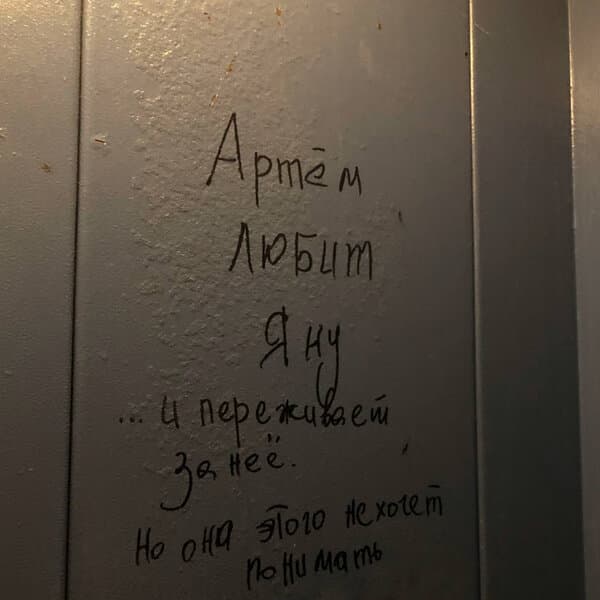 Артём
Любит
Яну
... и переживает
за неё.
Но она этого не хочет
понимать